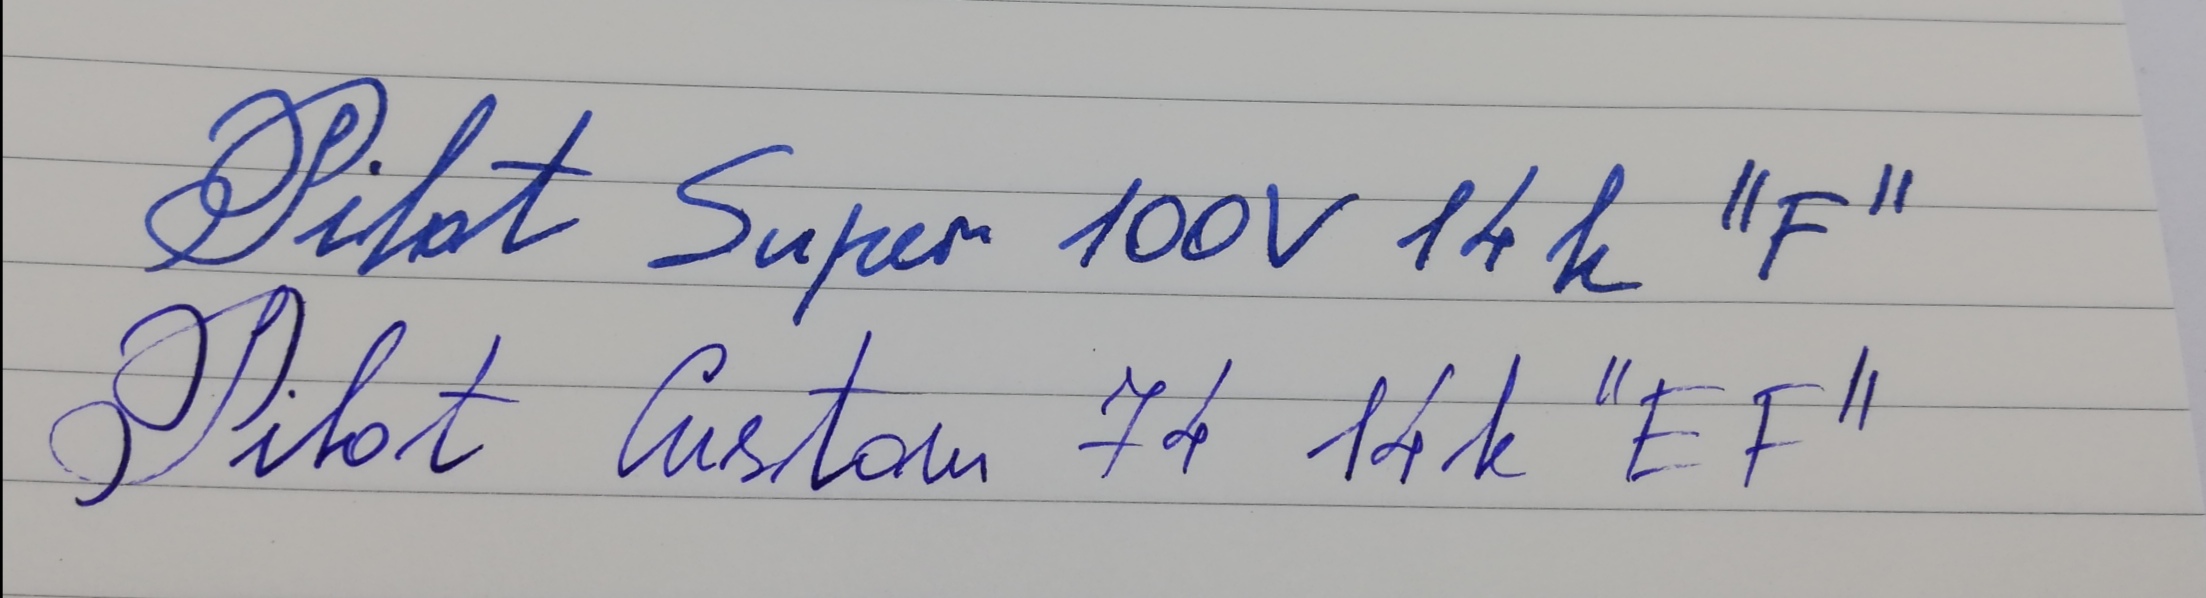 Pilot Super 100V 14k "F"
Pilot Custom 74 14k "EF"